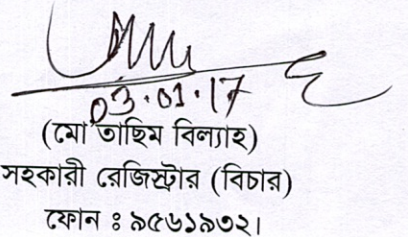 03.01.17
(মো তাছিম বিল্যাহ)
সহকারী রেজিস্ট্রার (বিচার)
ফোন ঃ ৯৫৬১৯৩২।